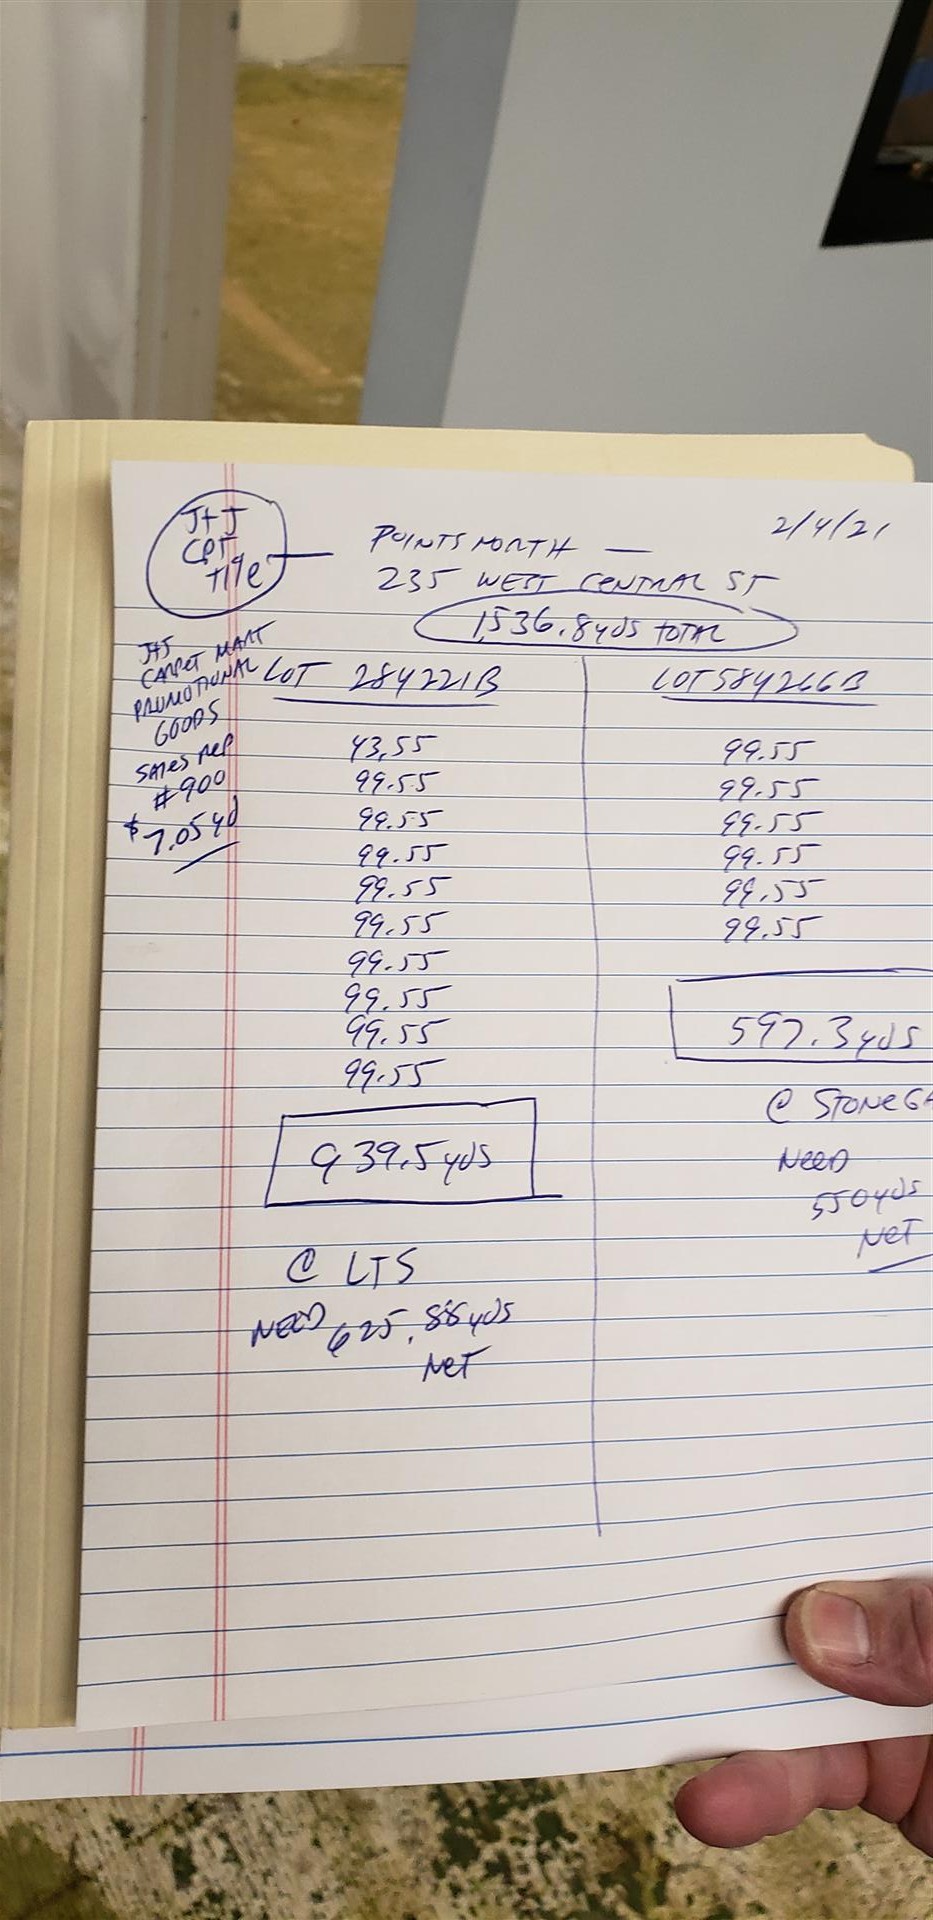 J+J
CPT
tile
POINTS NORTH —
2/4/21
235 WEST CENTRAL ST
1,536.8 yds TOTAL
J+J
CARPET MART
PROMOTIONAL
GOODS
SALES REP
#900
$7.05 yd
LOT 284221B
43.55
99.55
99.55
99.55
99.55
99.55
99.55
99.55
99.55
99.55
939.5 yds
@ LTS
NEED 625.88 yds
NET
LOT 584266B
99.55
99.55
99.55
99.55
99.55
99.55
597.3 yds
@ STONEGA
NEED
550 yds
NET